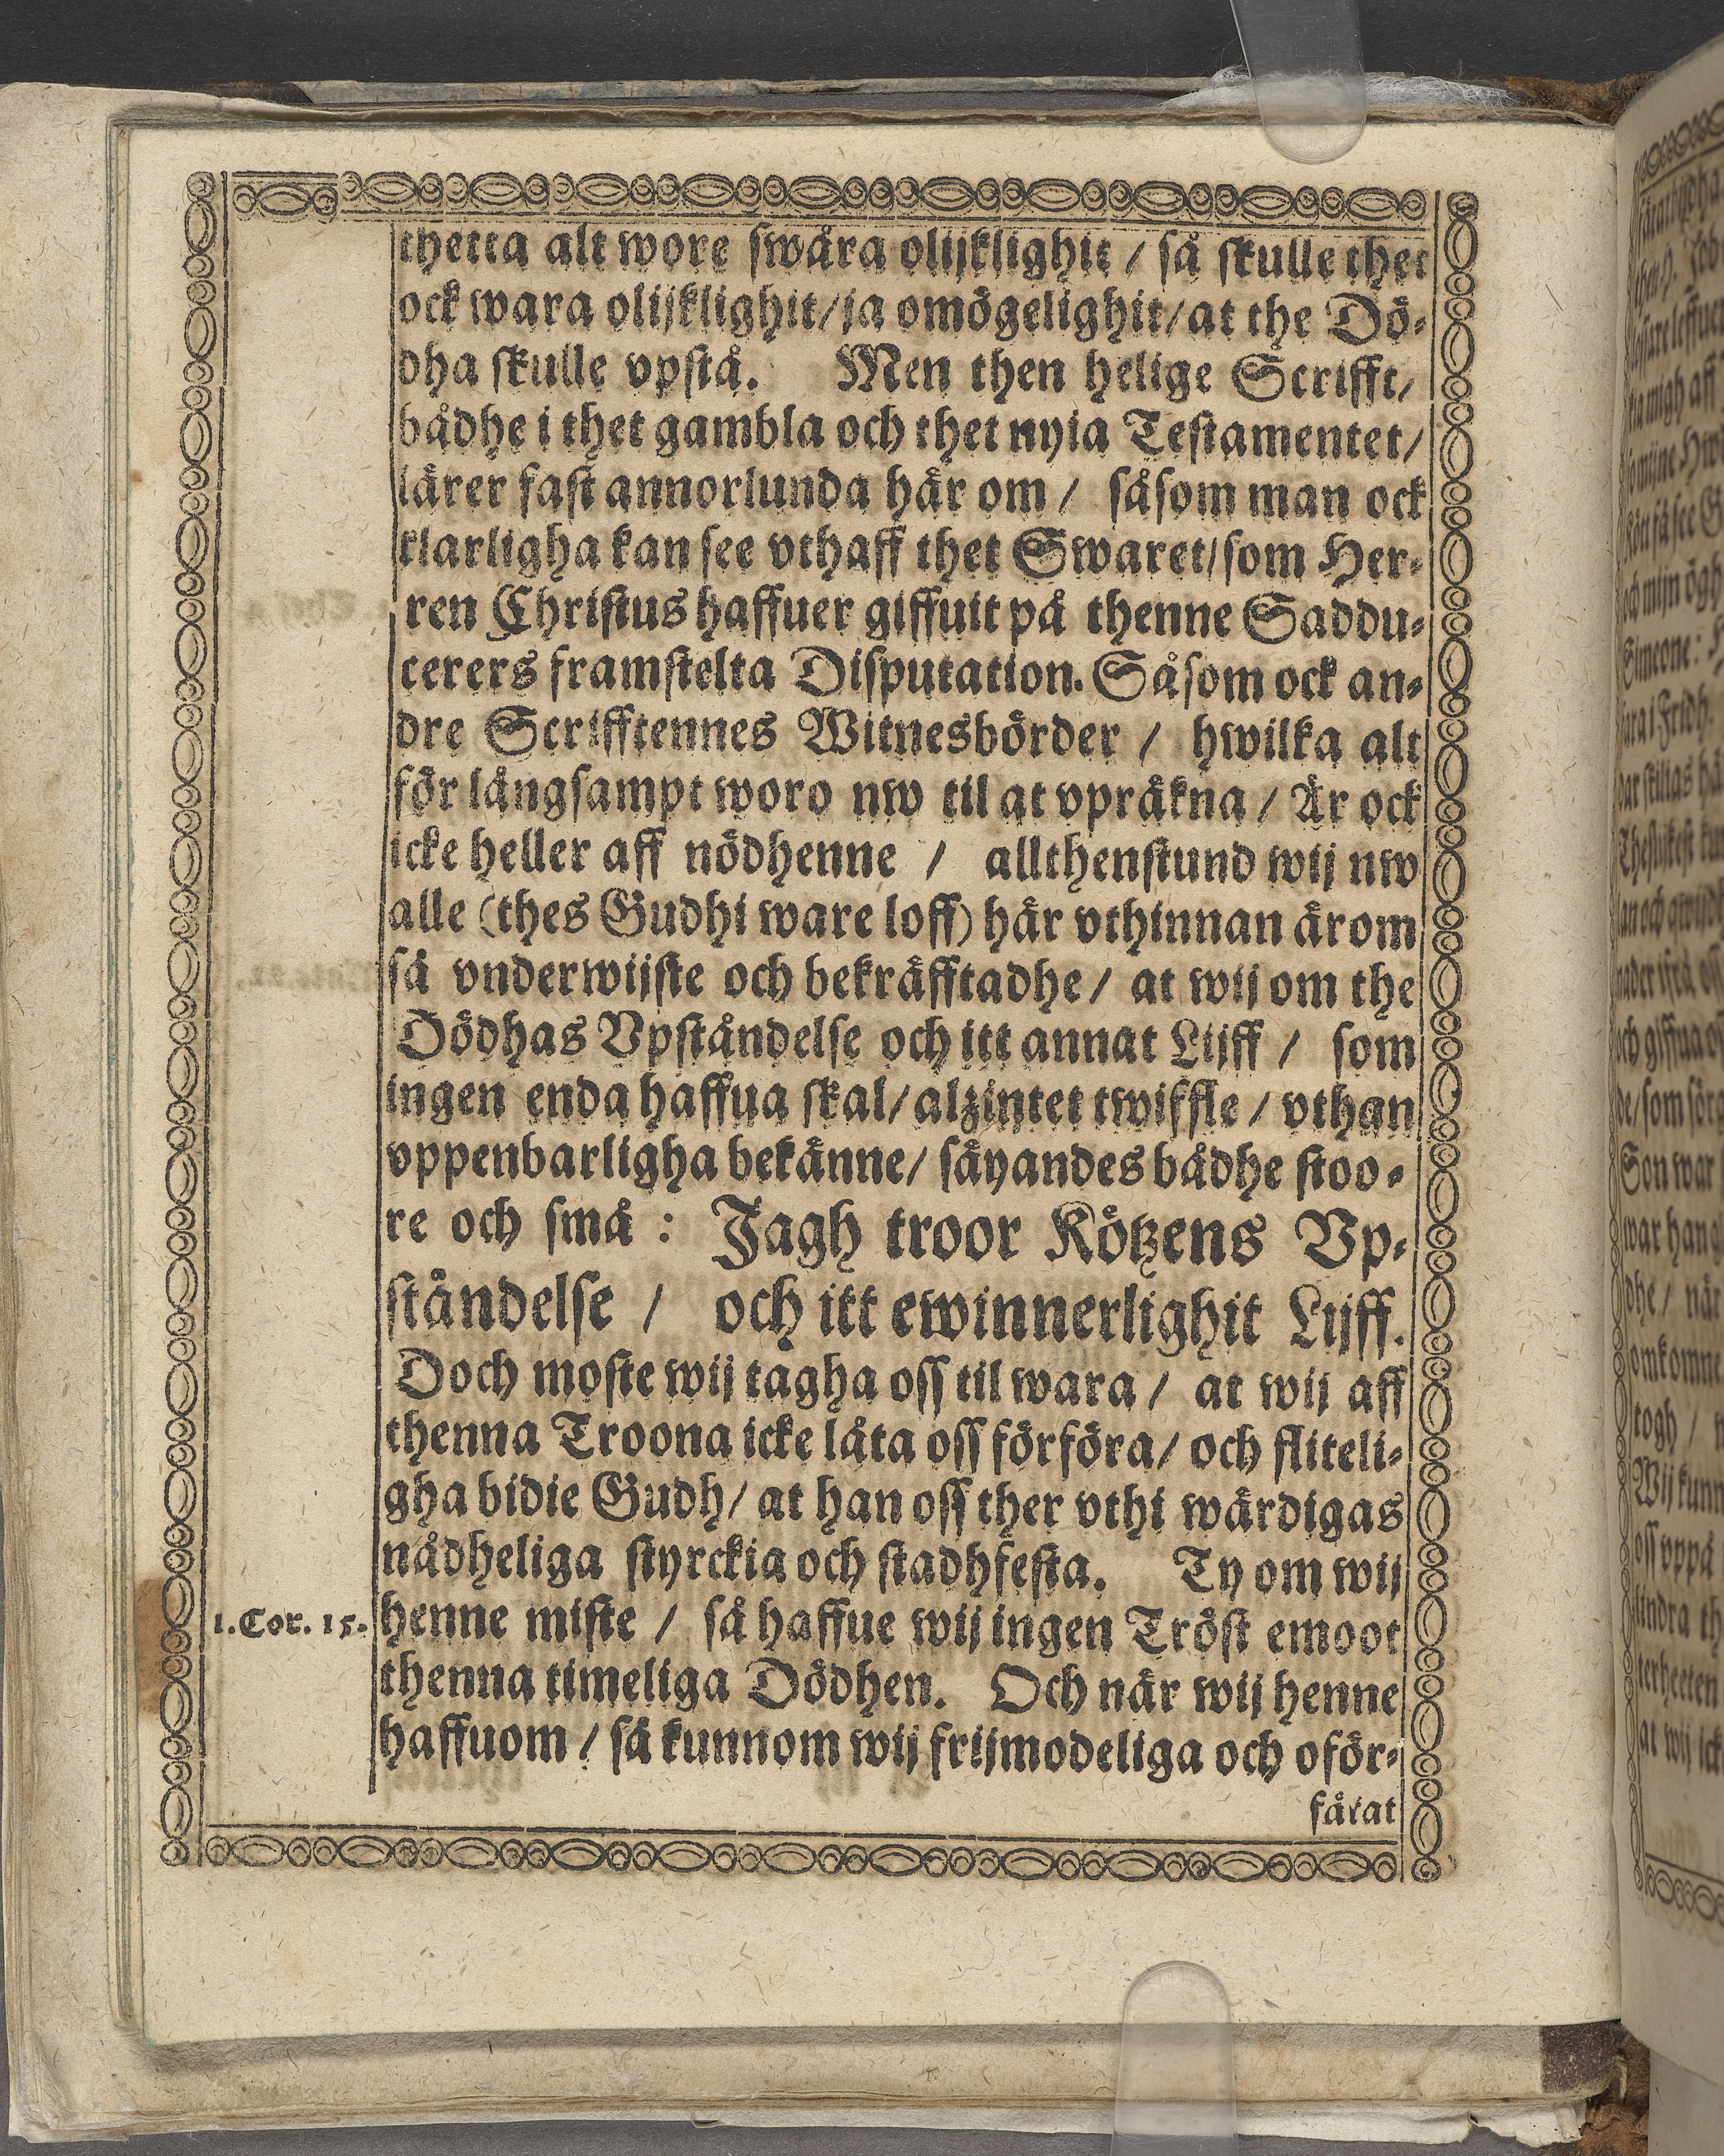 thetta alt wore swåra olijklighit / så skulle thet
ock wara olijklighit/ja omögelighit/at the Dö-
dha skulle vpstå. Men then helige Scrifft/
bådhe i thet gambla och thet nyia Testamentet/
lärer fast annorlunda här om / såsom man ock
klarligha kan see vthaff thet Swaret/som Her-
ren Christus haffuer giffuit på thenne Saddu-
cerers framstelta Disputation. Såsom ock an-
dre Scrifftennes Witnesbörder / hwilka alt
för långsampt woro nw til at vpräkna / Är ock
icke heller aff nödhenne / allthenstund wij nw
alle (thes Gudhi ware loff) här vthinnan ärom
så vnderwijste och bekräfftadhe / at wij om the
Dödhas Vpståndelse och itt annat Lijff / som
ingen enda haffua skal/ alzintet twiffle / vthan
vppenbarligha bekänne/ säyandes bådhe stoo-
re och små : Jagh troor Kötzens Vp-
ståndelse / och itt ewinnerlighit Lijff.
Doch moste wij tagha oss til wara / at wij aff
thenna Troona icke låta oss förföra/ och fliteli-
gha bidie Gudh/ at han oss ther vthi wärdigas
nådheliga styrckia och stadhfesta. Ty om wij
1. Cor. 15. henne miste / så haffue wij ingen Tröst emoot
thenna timeliga Dödhen. Och när wij henne
haffuom / så kunnom wij frijmodeliga och oför-
färat